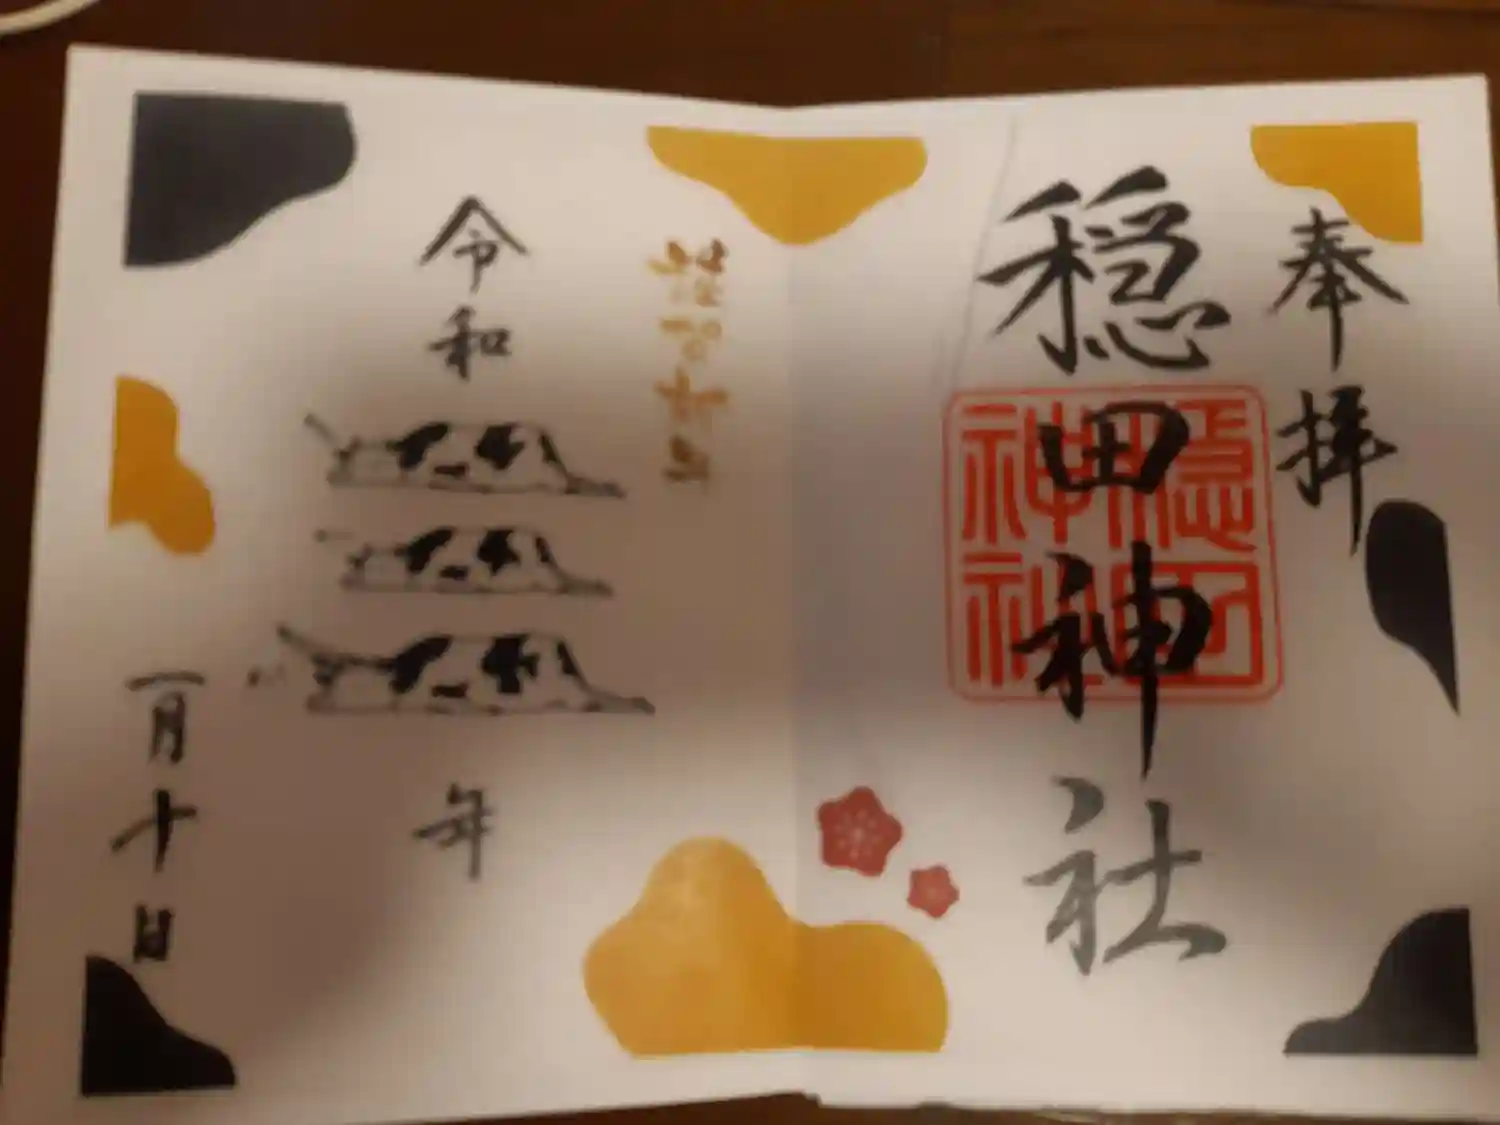 奉拝
穏田神社
穏田
神社
謹賀新年
令和三年
一月十日